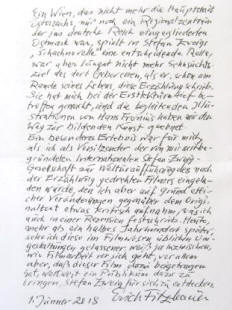 Ein Wien, das nicht mehr die Hauptstadt
Österreichs, nur noch ein Regionalzentrum
der ins deutsche Reich eingegliederten
Ostmark war, spielt in Stefan Zweigs
„Schachnovelle“ eine entscheidende Rolle,
war aber längst nicht mehr Sehnsuchts-
ziel des dort Geborenen, als er, schon am
Rande seines Lebens, diese Erzählung schrieb.
Sie hat mich bei der Erstlektüre
troffen gemacht, und die begleitenden Illu-
strationen von Hans Fronius haben mir den
Weg zur bildenden Kunst geebnet.
Ein besonderes Erlebnis war für mich,
als ich als Vorsitzender der von mir mitbe-
gründeten Internationalen Stefan Zweig-
Gesellschaft zur Welturaufführung des nach
der Erzählung gedrehten Filmes eingela-
den wurde, den ich aber auf Grund etli-
cher Veränderungen gegenüber dem Origi-
naltext etwas kritisch aufnahm, was ich
auch in einer Rezension festschrieb. Heute,
mehr als ein halbes Jahrhundert später,
sehe ich diese im Filmwesen üblichen Um-
gestaltungen gelassener, weiß ja inzwischen,
wie Filmarbeit vor sich geht, vor allem
aber, daß dieser Film dazu beigetragen
hat, weltweit ein Publikum dazu zu
bringen, Stefan Zweig für sich zu entdecken.
1. Jänner 2018